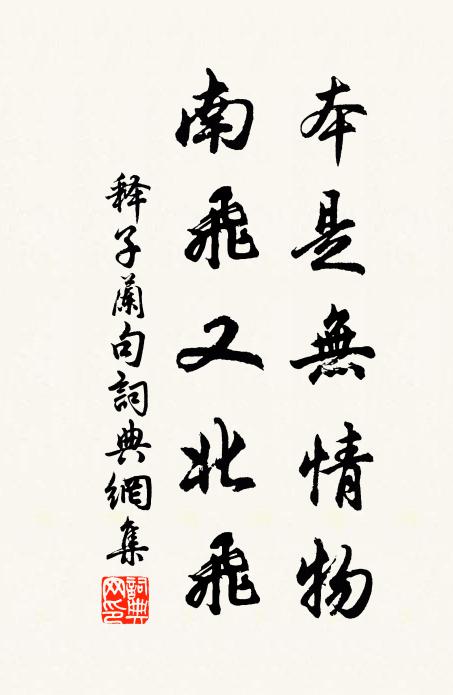 本是無情物
南飛又北飛
释子蘭句詞典網集
詞典网印